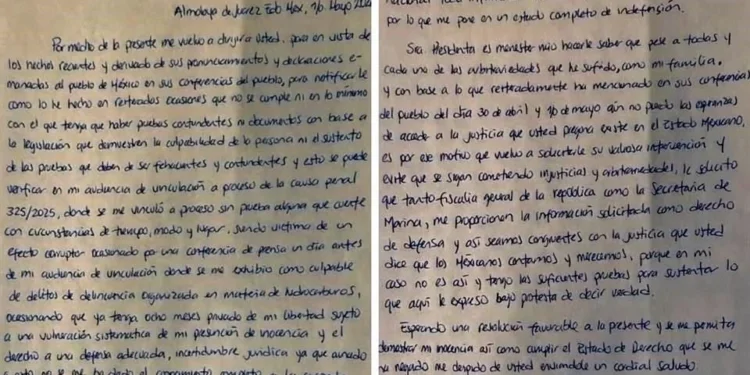 Almoloya de Juarez Edo Mex, 16 Mayo
Por medio de la presente me vuelvo a dirigir a Usted, para en vista de
los hechos recientes y derivado de sus pronunciamientos y declaraciones e-
manadas al pueblo de México en sus conferencias del pueblo, para notificarle
como lo he hecho en reiteradas ocasiones que no se cumple ni en lo minimo
con el que tenga que haber pruebas contundentes ni documentos con base a
la legislación que demuestren la culpabilidad de la persona ni el sustento
de las pruebas que deben de ser fehacientes y contundentes y esto se puede
verificar en mi audiencia de vinculación a proceso de la causa penal
325/2025, donde se me vinculó a proceso sin prueba alguna que cuente
con circunstancias de tiempo, modo y lugar, siendo victima de un
efecto corruptor ocasionado por una conferencia de prensa un día antes
de mi audiencia de vinculación donde se me exhibio como culpable
de delitos de delincuencia organizada en materia de hidrocarburos,
ocasionando que ya tenga ocho meses privado de mi libertad sujeto
a una vulneración sistematica de mi presunción de inocencia y el
derecho a una defensa adecuada, incertidumbre juridica ya que aunado
por lo que me pone en un estado completo de indefensión.
Sra. Presidenta es menester mio hacerle saber que pese a todas y
cada una de las arbitrariedades que he sufrido, como mi familia,
y con base a lo que reiteradamente ha mencionado en sus conferencias
del pueblo del día 30 de abril y 16 de mayo aún no pierdo las esperanzas
de acceder a la justicia que usted pregona existe en el Estado Mexicano,
es por ese motivo que vuelvo a solicitarle su valiosa intervención y
evite que se sigan cometiendo injusticias y arbitrariedades, le solicito
que tanto fiscalia general de la republica como la Secretaria de
Marina, me proporcionen la información solicitada como derecho
de defensa y así seamos congruentes con la justicia que usted
dice que los Méxicanos contamos y merecemos, porque en mi
caso no es así y tengo las suficientes pruebas para sustentar lo
que aquí le expreso bajo protesta de decir verdad.
Esperando una resolución favorable a la presente y se me permita
demostrar mi inocencia así como cumplir el Estado de Derecho que se me
ha negado me despido de usted enviandole un cordial saludo.